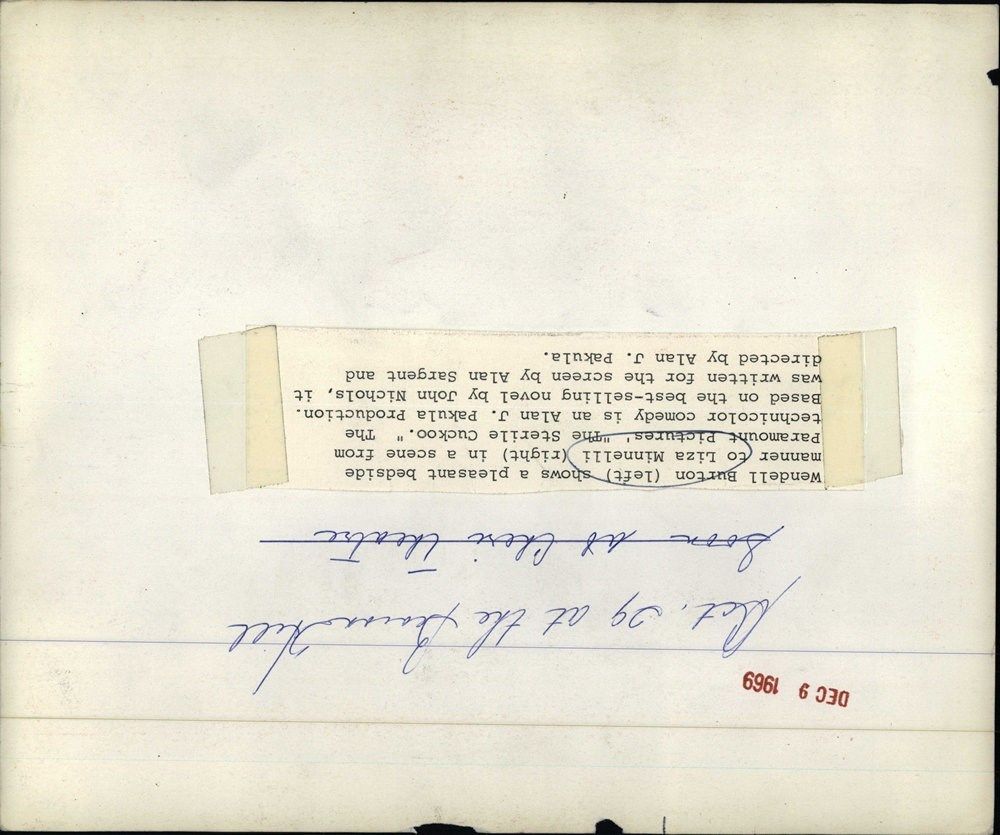 DEC 9 1969
Oct. 29 at the Beacon Hill
Soon at Cheri Theatre
Wendell Burton (left) shows a pleasant bedside
manner to Liza Minnelli (right) in a scene from
Paramount Pictures' "The Sterile Cuckoo." The
technicolor comedy is an Alan J. Pakula Production.
Based on the best-selling novel by John Nichols, it
was written for the screen by Alan Sargent and
directed by Alan J. Pakula.